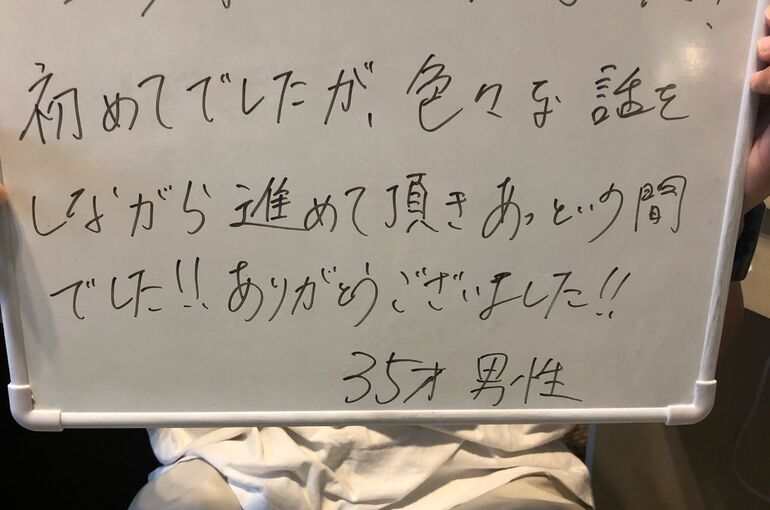 初めてでしたが、色々な話を
しながら進めて頂きあっという間
でした!! ありがとうございました!!
35才 男性